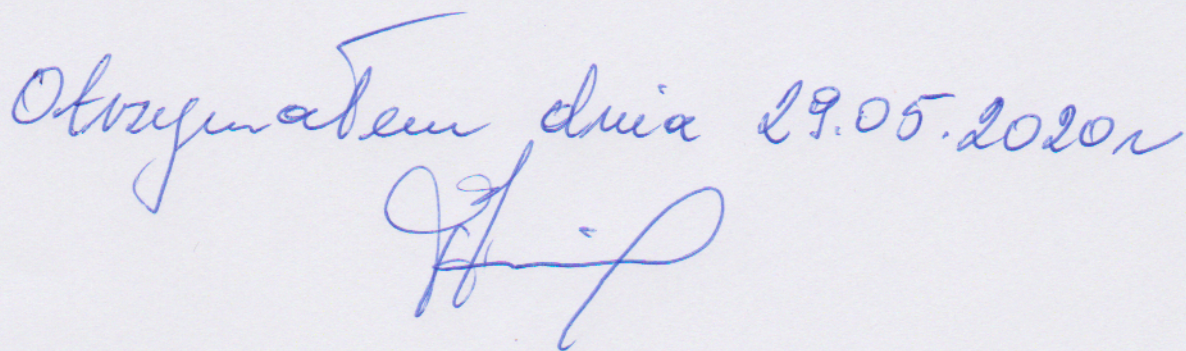 Otrzymałem dnia 29.05.2020r